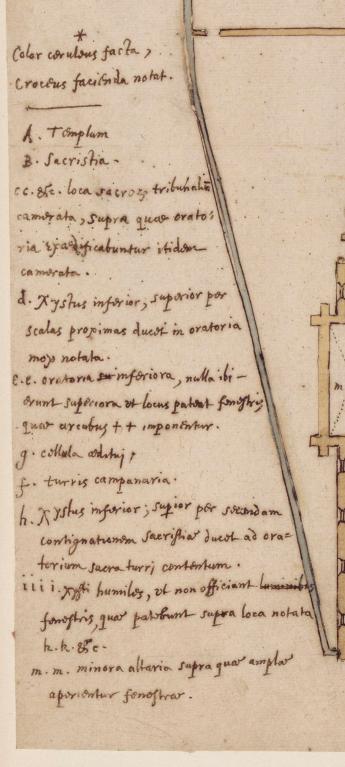 *
Color ceruleus facta,
Croceus facienda notat.
A. Templum
B. Sacristia.
cc. &c. loca sacror tribunaliū
camerata, supra quae orato-
ria exædificabuntur itidem
camerata.
d. Xystus inferior, superior per
scalas proximas ducet in oratoria
mox notata.
e.e. oratoria inferiora, nulla ibi-
erunt superiora vt locus pateat fenestris
quae arcubus ++ imponentur.
g. cellula æditui,
f. turris campanaria.
h. Xystus inferior; supior per secundam
contignationem sacristiæ ducet ad ora-
torium sacra turri contentum.
iiii. xysti humiles, vt non officiant
fenestris, quæ patebunt supra loca notata
k.k. &c.
m.m. minora altaria supra quæ amplæ
aperientur fenestræ.
m